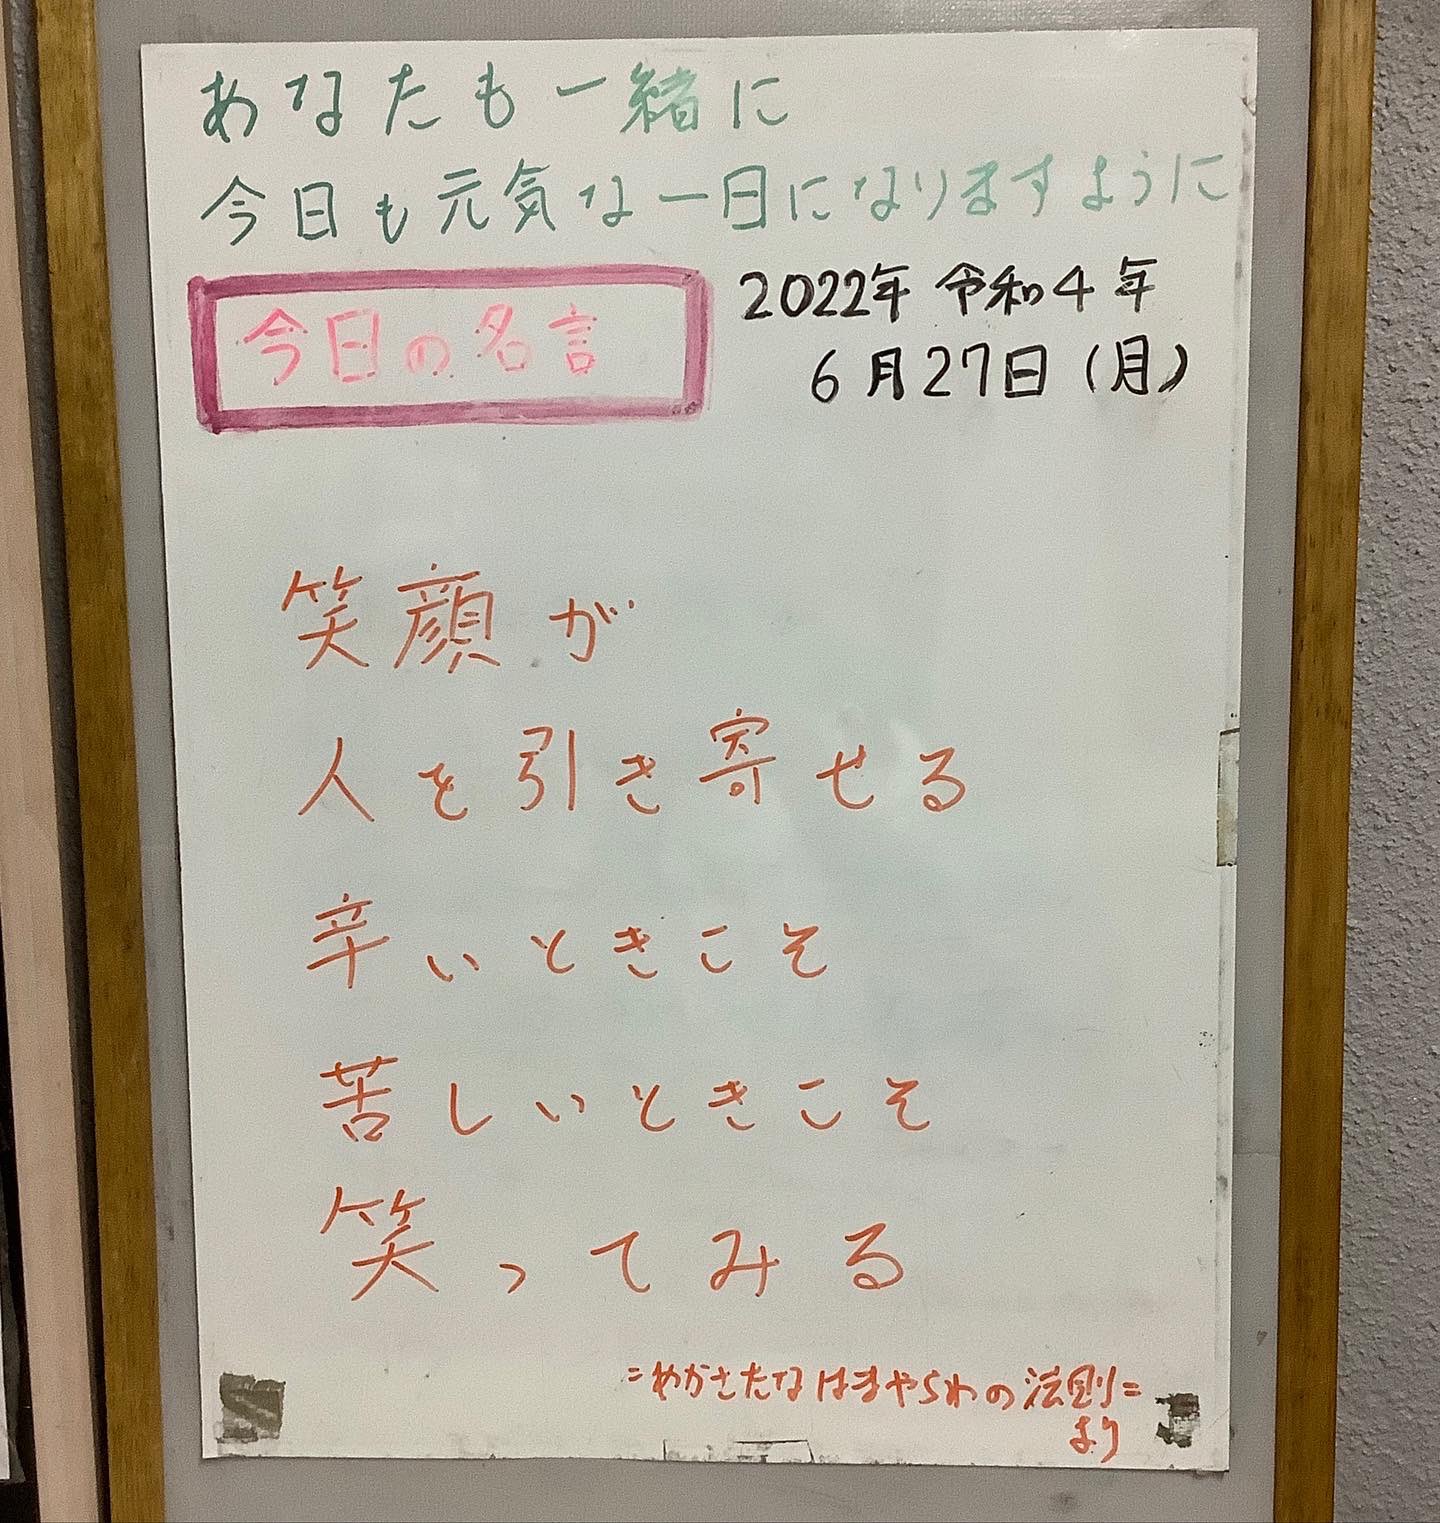 あなたも一緒に
今日も元気な一日になりますように
今日の名言
2022年 令和4年
6月27日(月)
笑顔が
人を引き寄せる
辛いときこそ
苦しいときこそ
笑ってみる
=あかさたなはまやらわの法則=
より